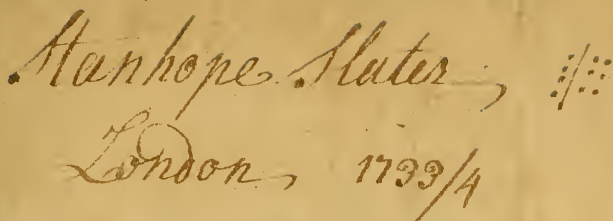 Stanhope Slater,
London, 1733/4